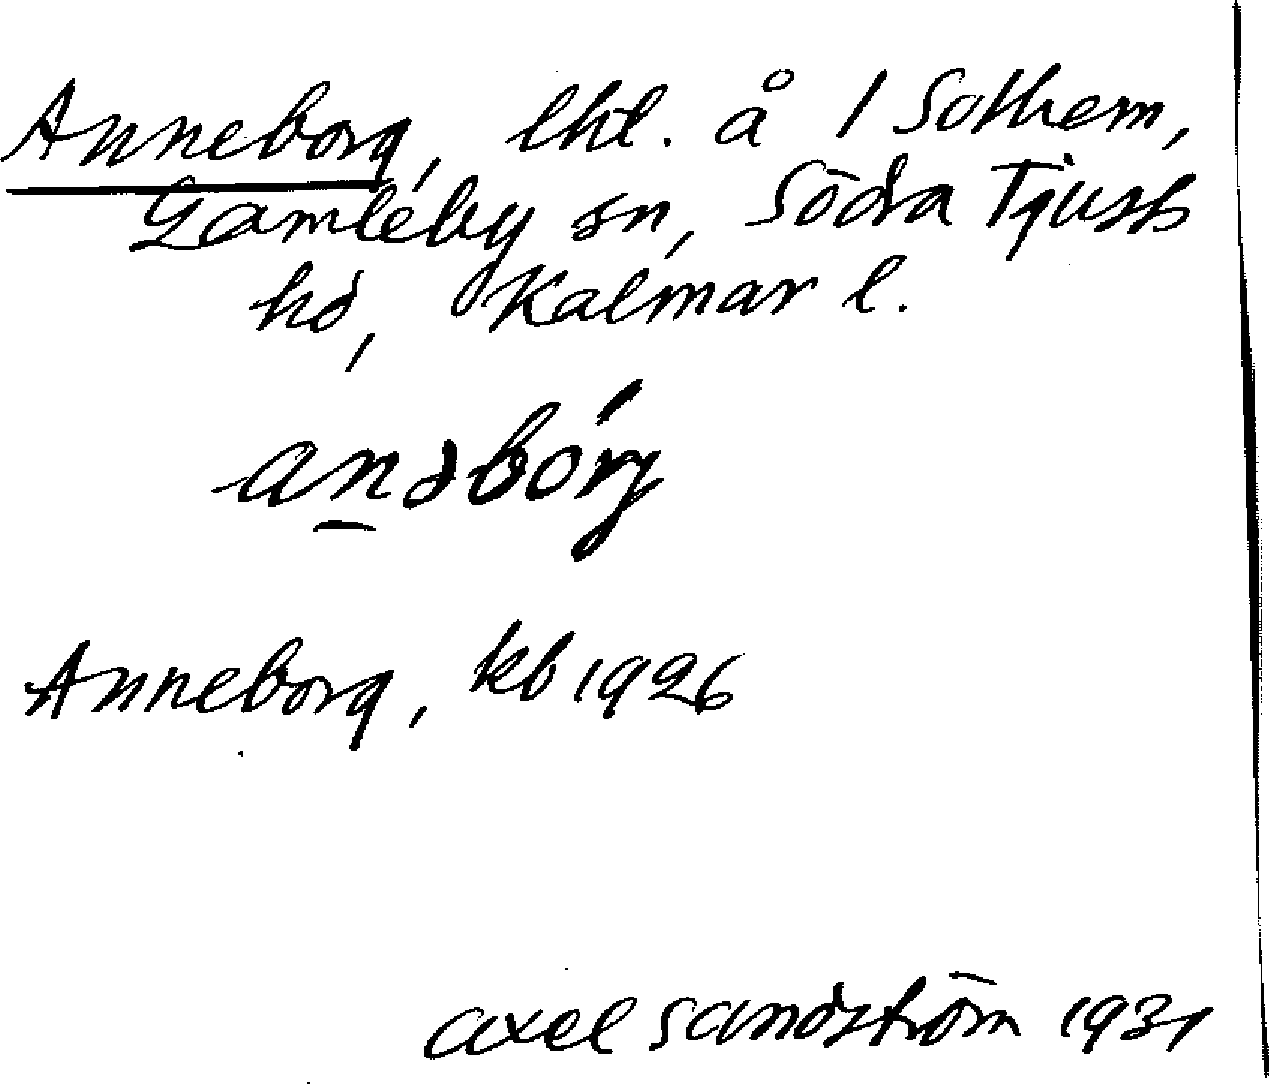 Anneborg, lht. å 1 Solhem,
Gamleby sn, Södra Tjusts
hd, Kalmar l.
Anneborg, kb 1926
Axel Sandström 1931